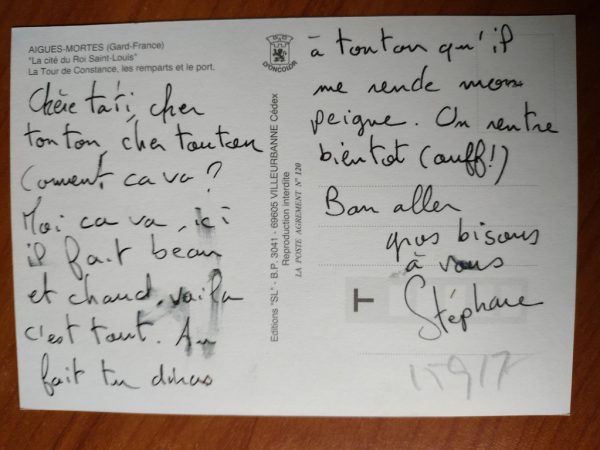 AIGUES-MORTES (Gard-France)
"La cité du Roi Saint-Louis"
La Tour de Constance, les remparts et le port.
Chère tati, cher
tonton, cher touton
Coment ca va ?
Moi ca va, ici
il fait beau
et chaud, voila
c'est tout. Au
fait tu diras
D'ONCOLOR
Editions "SL" - B.P. 3041 - 69605 VILLEURBANNE Cédex
Reproduction interdite
LA POSTE AGREMENT N° 120
à tonton qu'il
me rende mon
peigne. On rentre
bientot (ouff!)
Bon aller
gros bisous
à vous
Stéphane
T
15917